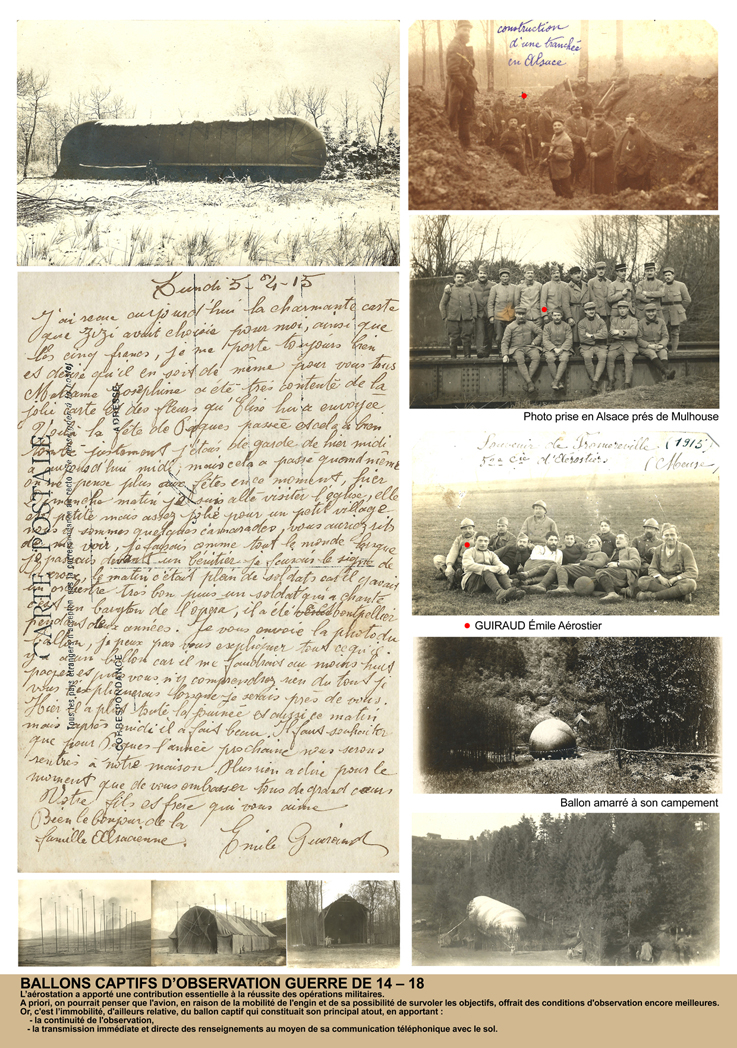 construction
d'une tranchée
en Alsace
Photo prise en Alsace prés de Mulhouse
Souvenir de Fromereville (1915)
5eme Cie d'Aerostiers (Meuse)
GUIRAUD Émile Aérostier
Ballon amarré à son campement
Lundi 5-4-15
J'ai reçue aujourd'hui la charmante carte
que Zizi avait choisie pour moi, ainsi que
les cinq francs, je me porte toujours bien
et désire qu'il en soit de même pour vous tous
Madame Joséphine a été très contente de la
jolie carte et des fleurs qu'Elise lui a envoyée
Voilà la fête de Pâques passée
justement j'étais de garde de hier midi
à aujourd'hui midi, mais cela a passé quand même
on ne pense plus aux fêtes en ce moment, hier
dimanche matin je suis allé visiter l'église, elle
est petite mais assez jolie pour un petit village
nous sommes quelques camarades, vous auriez ris
de me voir, je faisais comme tout le monde lorsque
je passais devant un bénitier je faisais le signe de
croix, le matin c'était plein de soldats car il y avait
un très bon puis un soldat qui a chanté
un baryton de l'opéra, il a été Montpellier
pendant deux années. Je vous envoie la photo du
ballon, je peux pas vous expliquer tout ce qu'il
y a a un ballon car il me faudrait au moins huit
pages et puis vous n'y comprendrez rien du tout je
vous expliquerais lorsque je serais près de vous.
Hier il a plut toute la journée et aussi ce matin
mais après midi il a fait beau. Il faut souhaiter
que pour Pâques l'année prochaine nous serons
rentrés à notre maison. Plus rien a dire pour le
moment que de vous embrasser tous de grand cœur
Votre fils et frère qui vous aime
Bien le bonjour de la
famille Alsacienne.
Emile Guiraud
CARTE POSTALE
CORRESPONDANCE
ADRESSE
BALLONS CAPTIFS D'OBSERVATION GUERRE DE 14 – 18
L'aérostation a apporté une contribution essentielle à la réussite des opérations militaires.
A priori, on pourrait penser que l'avion, en raison de la mobilité de l'engin et de sa possibilité de survoler les objectifs, offrait des conditions d'observation encore meilleures.
Or, c'est l'immobilité, d'ailleurs relative, du ballon captif qui constituait son principal atout, en apportant :
- la continuité de l'observation,
- la transmission immédiate et directe des renseignements au moyen de sa communication téléphonique avec le sol.